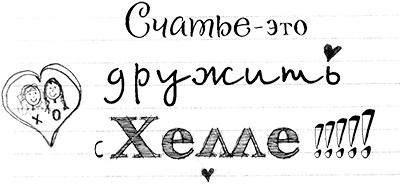 Счастье-это
дружить
с Хелле !!!!!
Х О